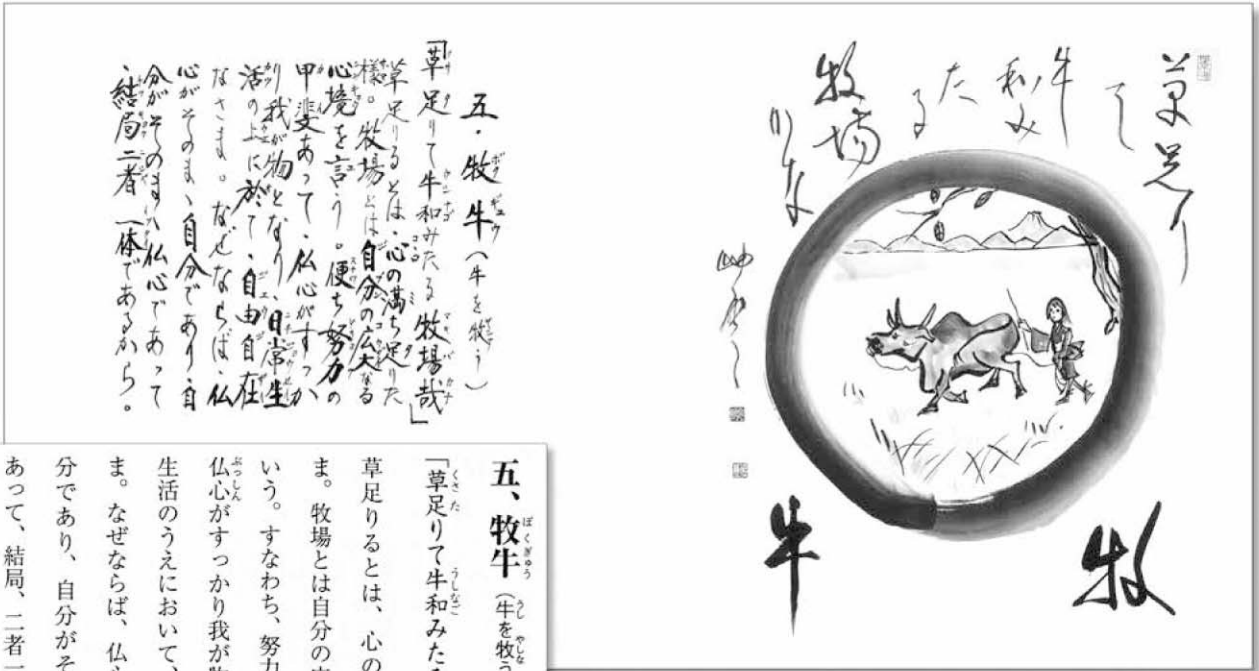 草足り
て
牛
和み
た
る
牧場
かな
牧
牛
五・牧牛(牛を牧う)
「草足りて牛和みたる牧場哉」
草足りるとは、心の満ち足りた
様。牧場とは自分の広大なる
心境を言う。便ち努力の
甲斐あって、仏心がすっか
り我が物となり、日常生
活の上に於て、自由自在
なさま。なぜならば、仏
心がそのまゝ自分であり、自
分がそのまゝ仏心であって
、結局二者一体であるから。
五、牧牛(牛を牧う
「草足りて牛和みた
草足りるとは、心の
ま。牧場とは自分の
いう。すなわち、努力
仏心がすっかり我が
生活のうえにおいて、
ま。なぜならば、仏
分であり、自分がそ
あって、結局、二者一